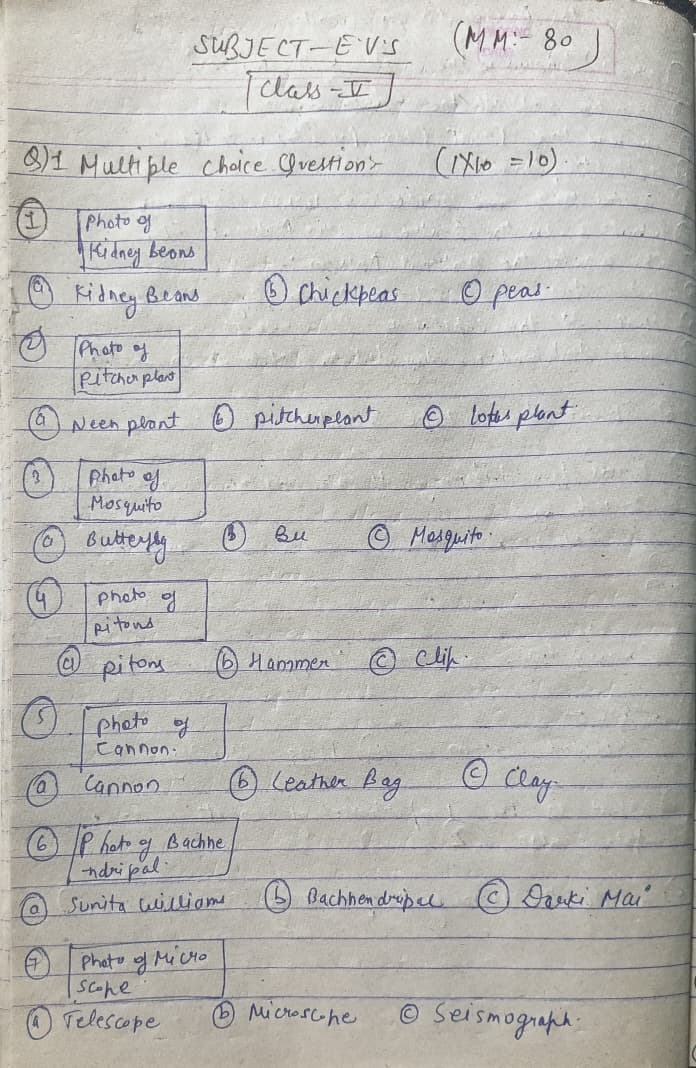 SUBJECT-E.V.S (MM:- 80)
Class-V
Q)1 Multiple choice Question:- (1X10 =10).
1 Photo of
Kidney beans
a Kidney Beans b Chickpeas c peas.
2 Photo of
Pitcher plant
a Neen plant b pitcherplant c lotus plant
3 Photo of
Mosquito
a Butterfly B Bee c Mosquito.
4 photo of
pitons
a pitons b Hammer c Clip.
5 photo of
Cannon.
a Cannon b Leather Bag c Clay.
6 Photo of Bachhe
-ndripal.
a Sunita williams b Bachhendripal c Darki Mai
7 Photo of Micro
scope
a Telescope b Microscope c Seismograph.